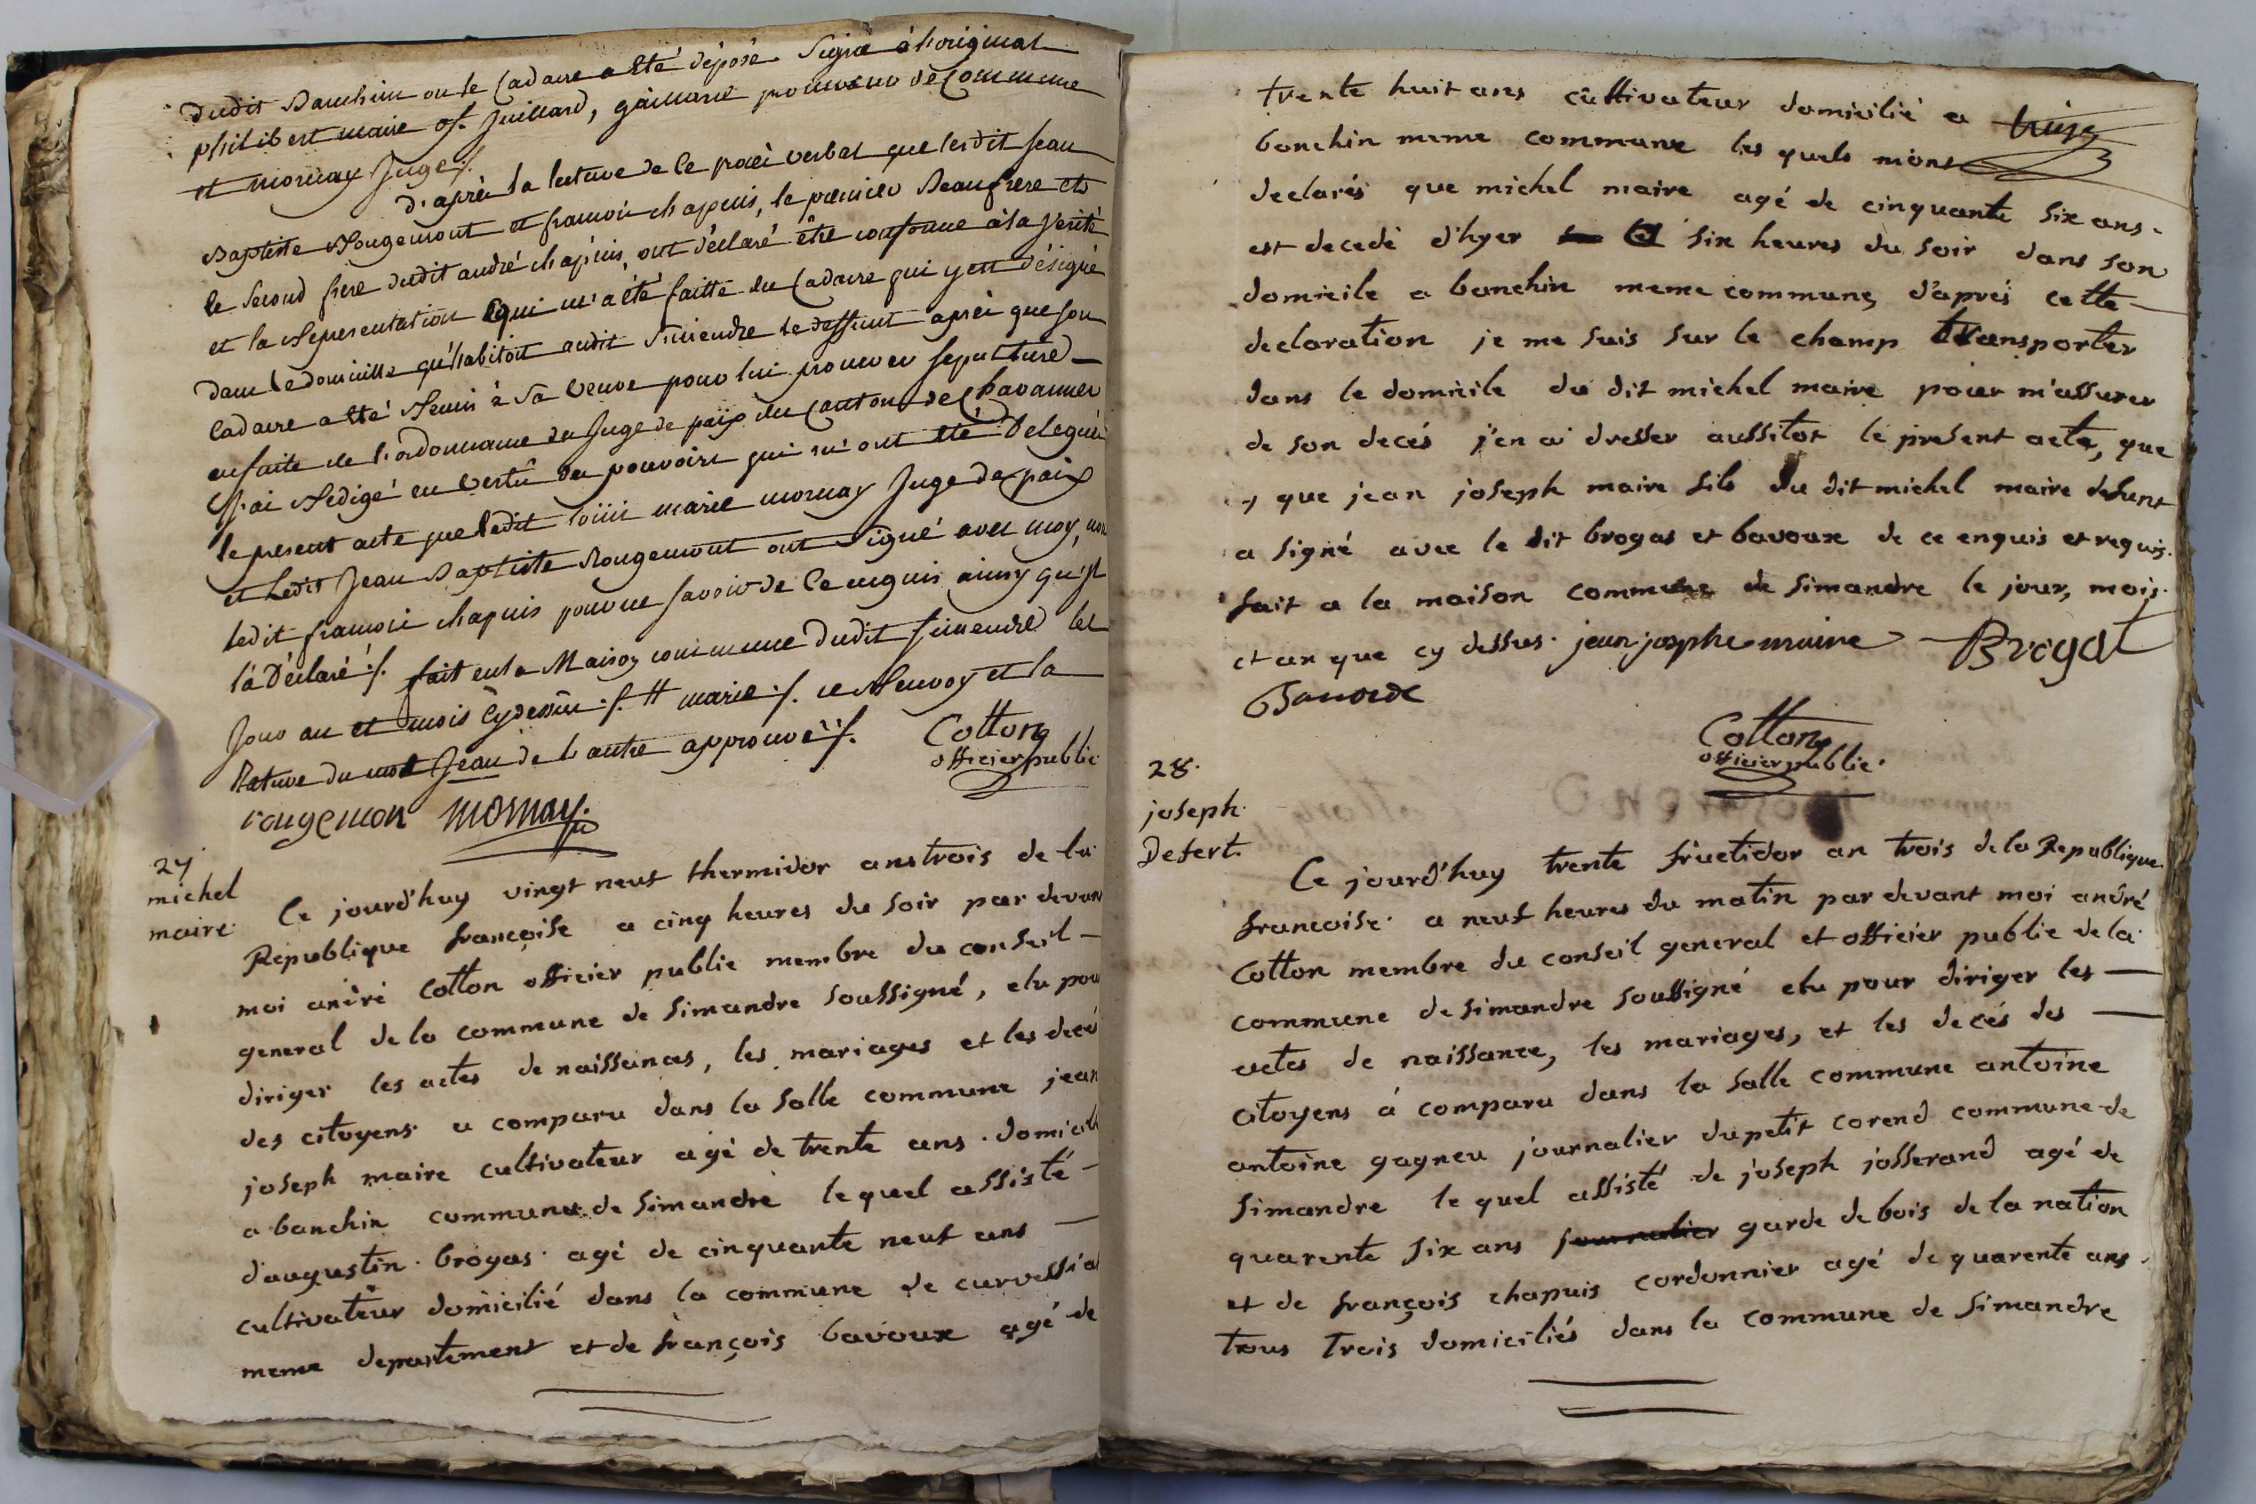 dudit Banchin ou le Cadavre a été déposé Signé à l'original
philibert maire of. Juillard, gaillard procureur de Commune
et mornay Juge ./.
d'après la lecture de Ce procès verbal que lesdit Jean
Baptiste Rougemont et francois chapuis, le premier Beaufrere et
le Second frere dudit andré chapuis, ont déclaré être conforme à la verité
et la Representation qui m'a été faitte du Cadavre qui y est désigné
dans le domicille qu'habitoit audit Simendre le deffunt après que son
Cadavre a été Remis à Sa veuve pour lui procurer sepulture
en suite de l'ordonnance du Juge de païx du Canton de Chavannes
J'ai Redigé en vertû des pouvoirs qui m'ont été délégués
le present acte que ledit loüis marie mornay Juge de paix
et ledit Jean Baptiste Rougemont ont Signé avec moy, non
ledit francois chapuis pour ne savoir de Ce enquis ainsy qu'jl
l'a Déclaré ./. fait en la Maison commune dudit Simendre les
Jour an et mois Cydessus ./. # marie ./. ce Renvoy et la
Rature du mot Jean de l'autre approuvés ./.
Cotton
officier public
rougemon mornay
27
michel
maire
Ce jourd'huy vingt neuf thermidor ans trois de la
Republique françoise a cinq heures du soir par devant
moi andré Cotton officier public membre du conseil
general de la commune de Simandre soussigné, elu pour
diriger les actes de naissances, les mariages et les decés
des citoyens a comparu dans la salle commune jean
joseph maire cultivateur agé de trente ans domicilié
a banchin commune de Simandre le quel assisté
d'augustin brogas agé de cinquante neuf ans
cultivateur domicilié dans la commune de curvessiat
meme departement et de françois bavoux agé de
trente huit ans cultivateur domicilié a
bonchin meme commune les quels mont
declarés que michel maire agé de cinquante six ans
est decedé d'hyer a six heures du soir dans son
domicile a banchin meme commune, d'aprés cette
declaration je me suis sur le champ transporter
dans le domicile du dit michel maire pour m'assurer
de son decés j'en ai dresser aussitot le present acte, que
que jean joseph maire fils du dit michel maire defunt
a signé avec le dit brogas et bavoux de ce enquis et requis.
fait a la maison commune de Simandre le jour, mois
et an que cy dessus. jean josephe maire Brogat
Bavoux
Cotton
officier public
28.
joseph
Defert.
Ce jourd'huy trente fructidor an trois de la Republique
francoise a neuf heures du matin par devant moi andré
Cotton membre du conseil general et officier public de la
commune de simandre soussigné elu pour diriger les
actes de naissance, les mariages, et les decés des
citoyens à comparu dans la salle commune antoine
antoine gagneu journalier du petit corend commune de
Simandre le quel assisté de joseph josserand agé de
quarente six ans journalier garde de bois de la nation
et de françois chapuis cordonnier agé de quarente ans
tous trois domiciliés dans la commune de Simandre